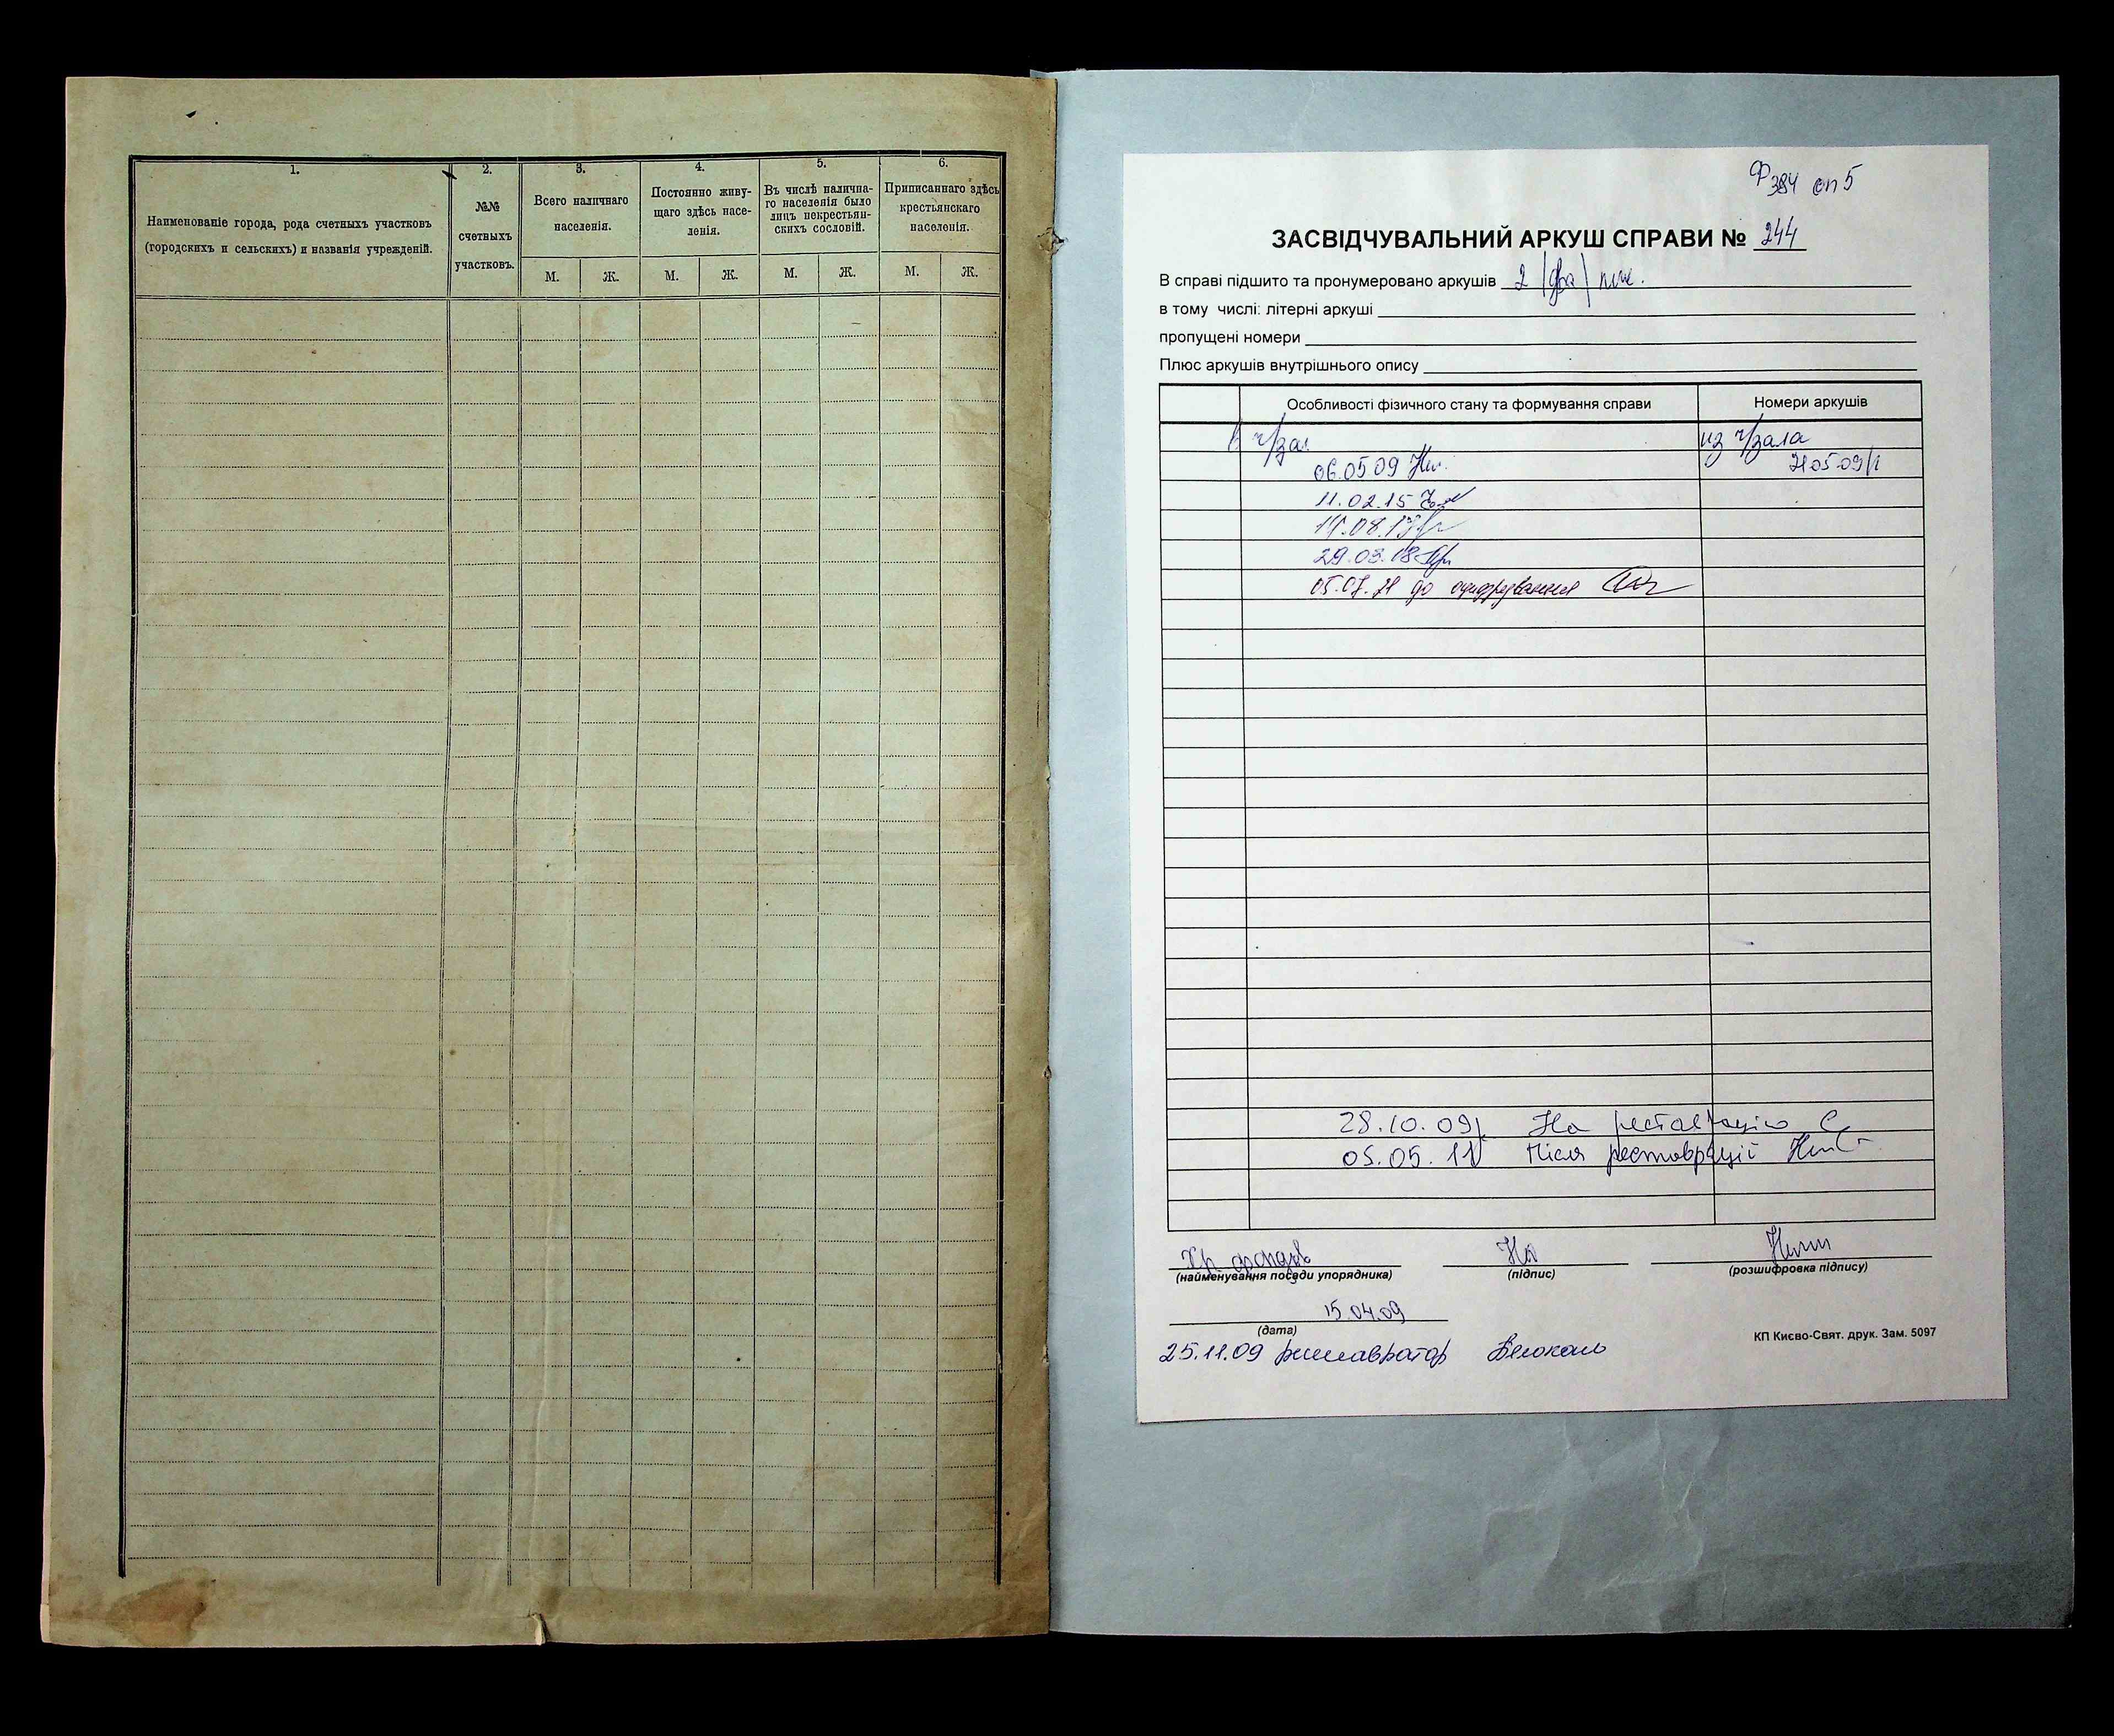 1.
Наименованіе города, рода счетныхъ участковъ
(городскихъ и сельскихъ) и названія учрежденій.
2.
№№
счетныхъ
участковъ.
3.
Всего наличнаго
населенія.
М. Ж.
4.
Постоянно живу-
щаго здѣсь насе-
ленія.
М. Ж.
5.
Въ числѣ налична-
го населенія было
лицъ некрестьян-
скихъ сословій.
М. Ж.
6.
Приписаннаго здѣсь
крестьянскаго
населенія.
М. Ж.
Ф 384 оп 5
ЗАСВІДЧУВАЛЬНИЙ АРКУШ СПРАВИ № 244
В справі підшито та пронумеровано аркушів 2 (два)
в тому числі: літерні аркуші
пропущені номери
Плюс аркушів внутрішнього опису
Особливості фізичного стану та формування справи Номери аркушів
в ч/зал из ч/зала
06.05.09
11.02.15
05.07.21 до оцифрування
28.10.09 На реставрацію
05.05.11 Після реставрації
Хр. фондів
(найменування посади упорядника) (підпис) (розшифровка підпису)
15.04.09
(дата)
КП Києво-Свят. друк. Зам. 5097
25.11.09 реставратор